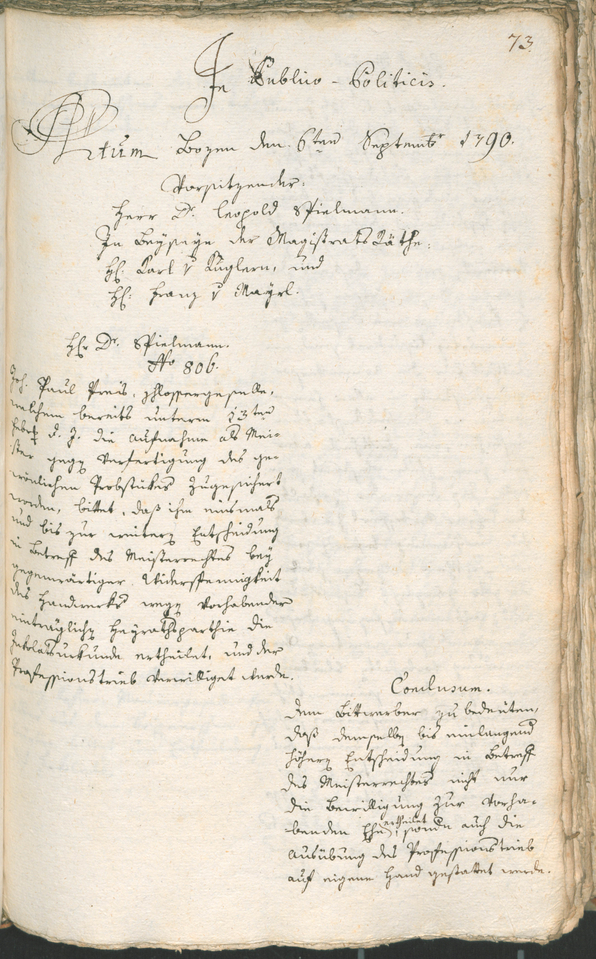 73.
In Publico-Politicis.
Actum Bozen den 6ten Septembr 1790.
Vorsitzender.
Herr Dr. Leopold Spielmann.
In Beyseyn der Magistrats Räthe.
H. Karl v Küglern, und
H. Franz v Mayrl.
Hr Dr. Spielmann.
No 806.
Joh. Paul Preis, Schlossergeselle,
welchem bereits unterm 13ten
Febr. d. J. die Aufnahme als Mei-
ster gegen Verfertigung des ge-
wönlichen Probstückes zugesichert
worden, bittet, daß ihm
und bis zur weitern Entscheidung
in Betreff des Meisterrechtes bey
gegenwärtiger Widerspennigkeit
des Handwerks wegen vorhabender
einträglichen Heyrathsparthie die
ertheilet, und der
Professionstrieb verwilliget werde.
Conclusum.
Dem Bittwerber zu bedeuten,
daß demselben bis einlangend
höhern Entscheidung in Betreff
des Meisterrechtes nicht nur
die Bewilligung zur vorha-
benden Ehe ertheilet, sondern auch die
Ausübung des Professionstrieb
auf eigene Hand gestattet werde.